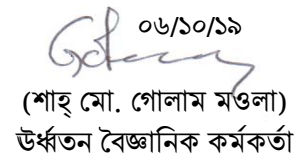 ০৬/১০/১৯
(শাহ্ মো. গোলাম মওলা)
ঊর্ধ্বতন বৈজ্ঞানিক কর্মকর্তা